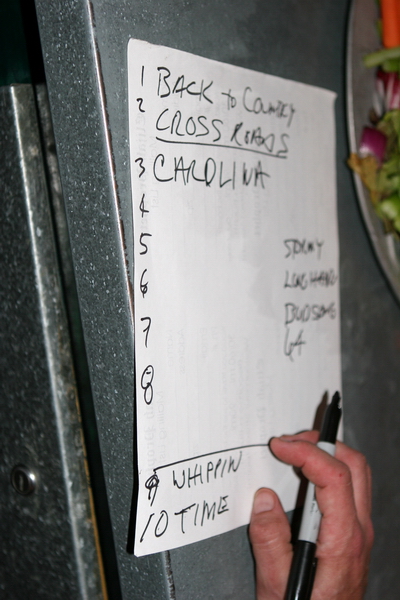 1 BACK to COUNTRY
2 CROSS ROADS
3 CAROLINA
4
5
6
7
8
STORMY
LONG HAIRED
DUDSONG
64
9 WHIPPIN
10 TIME